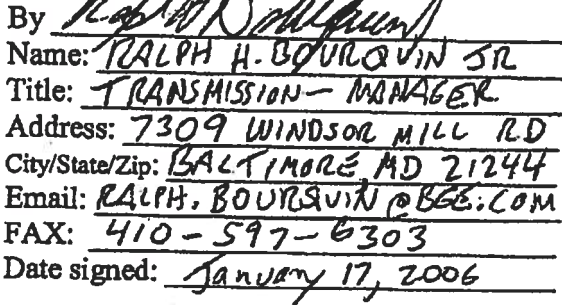 By
Name: RALPH H. BOURQUIN JR
Title: TRANSMISSION - MANAGER
Address: 7309 WINDSOR MILL RD
City/State/Zip: BALTIMORE MD 21244
Email: RALPH.BOURQUIN@BGE.COM
FAX: 410-597-6303
Date signed: January 17, 2006